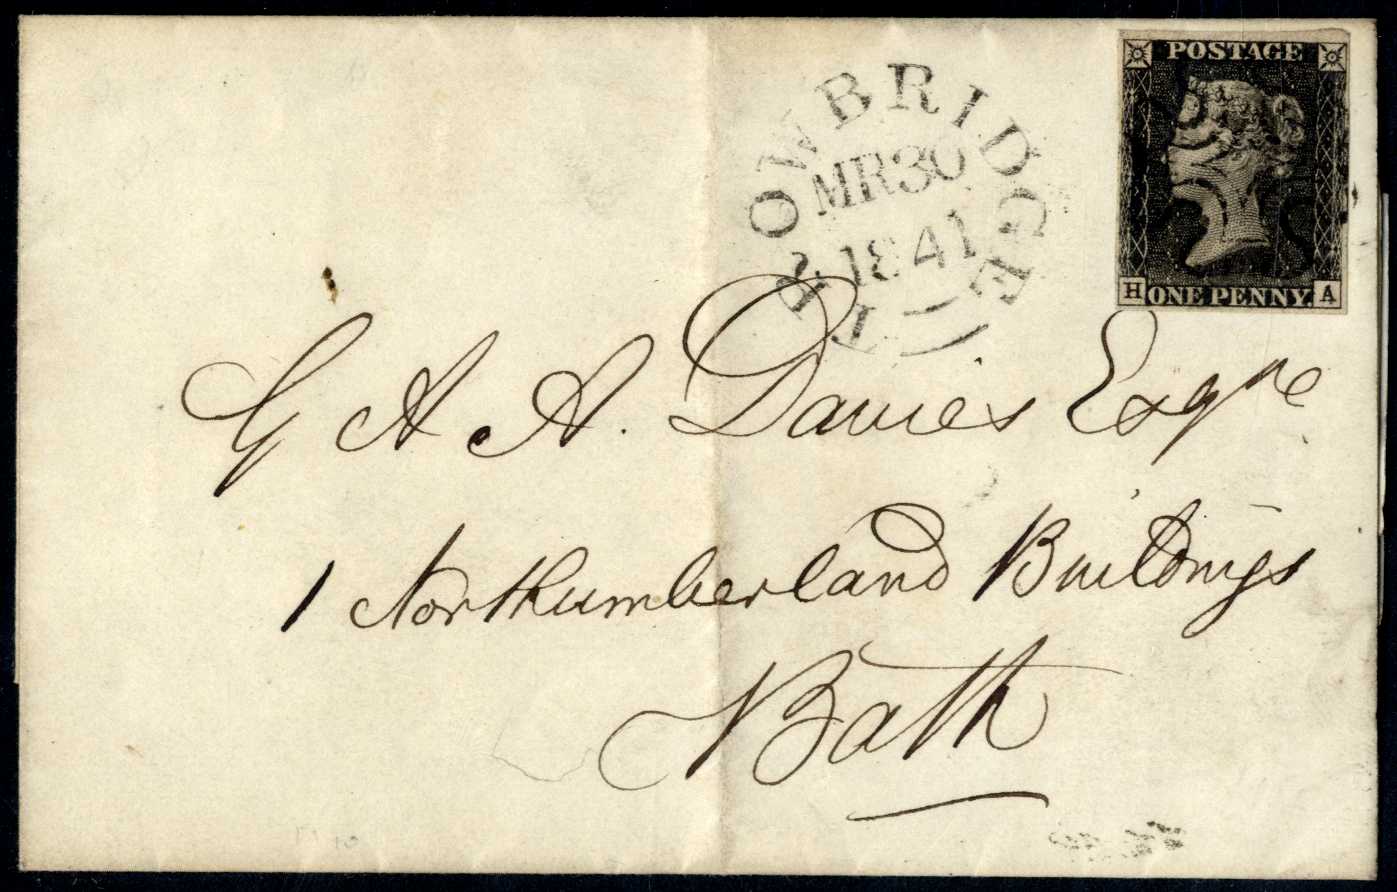 POSTAGE
TROWBRIDGE
MR30
1841
H ONE PENNY. A
G A A. Davies Esqre
1 Northumberland Buildings
Bath